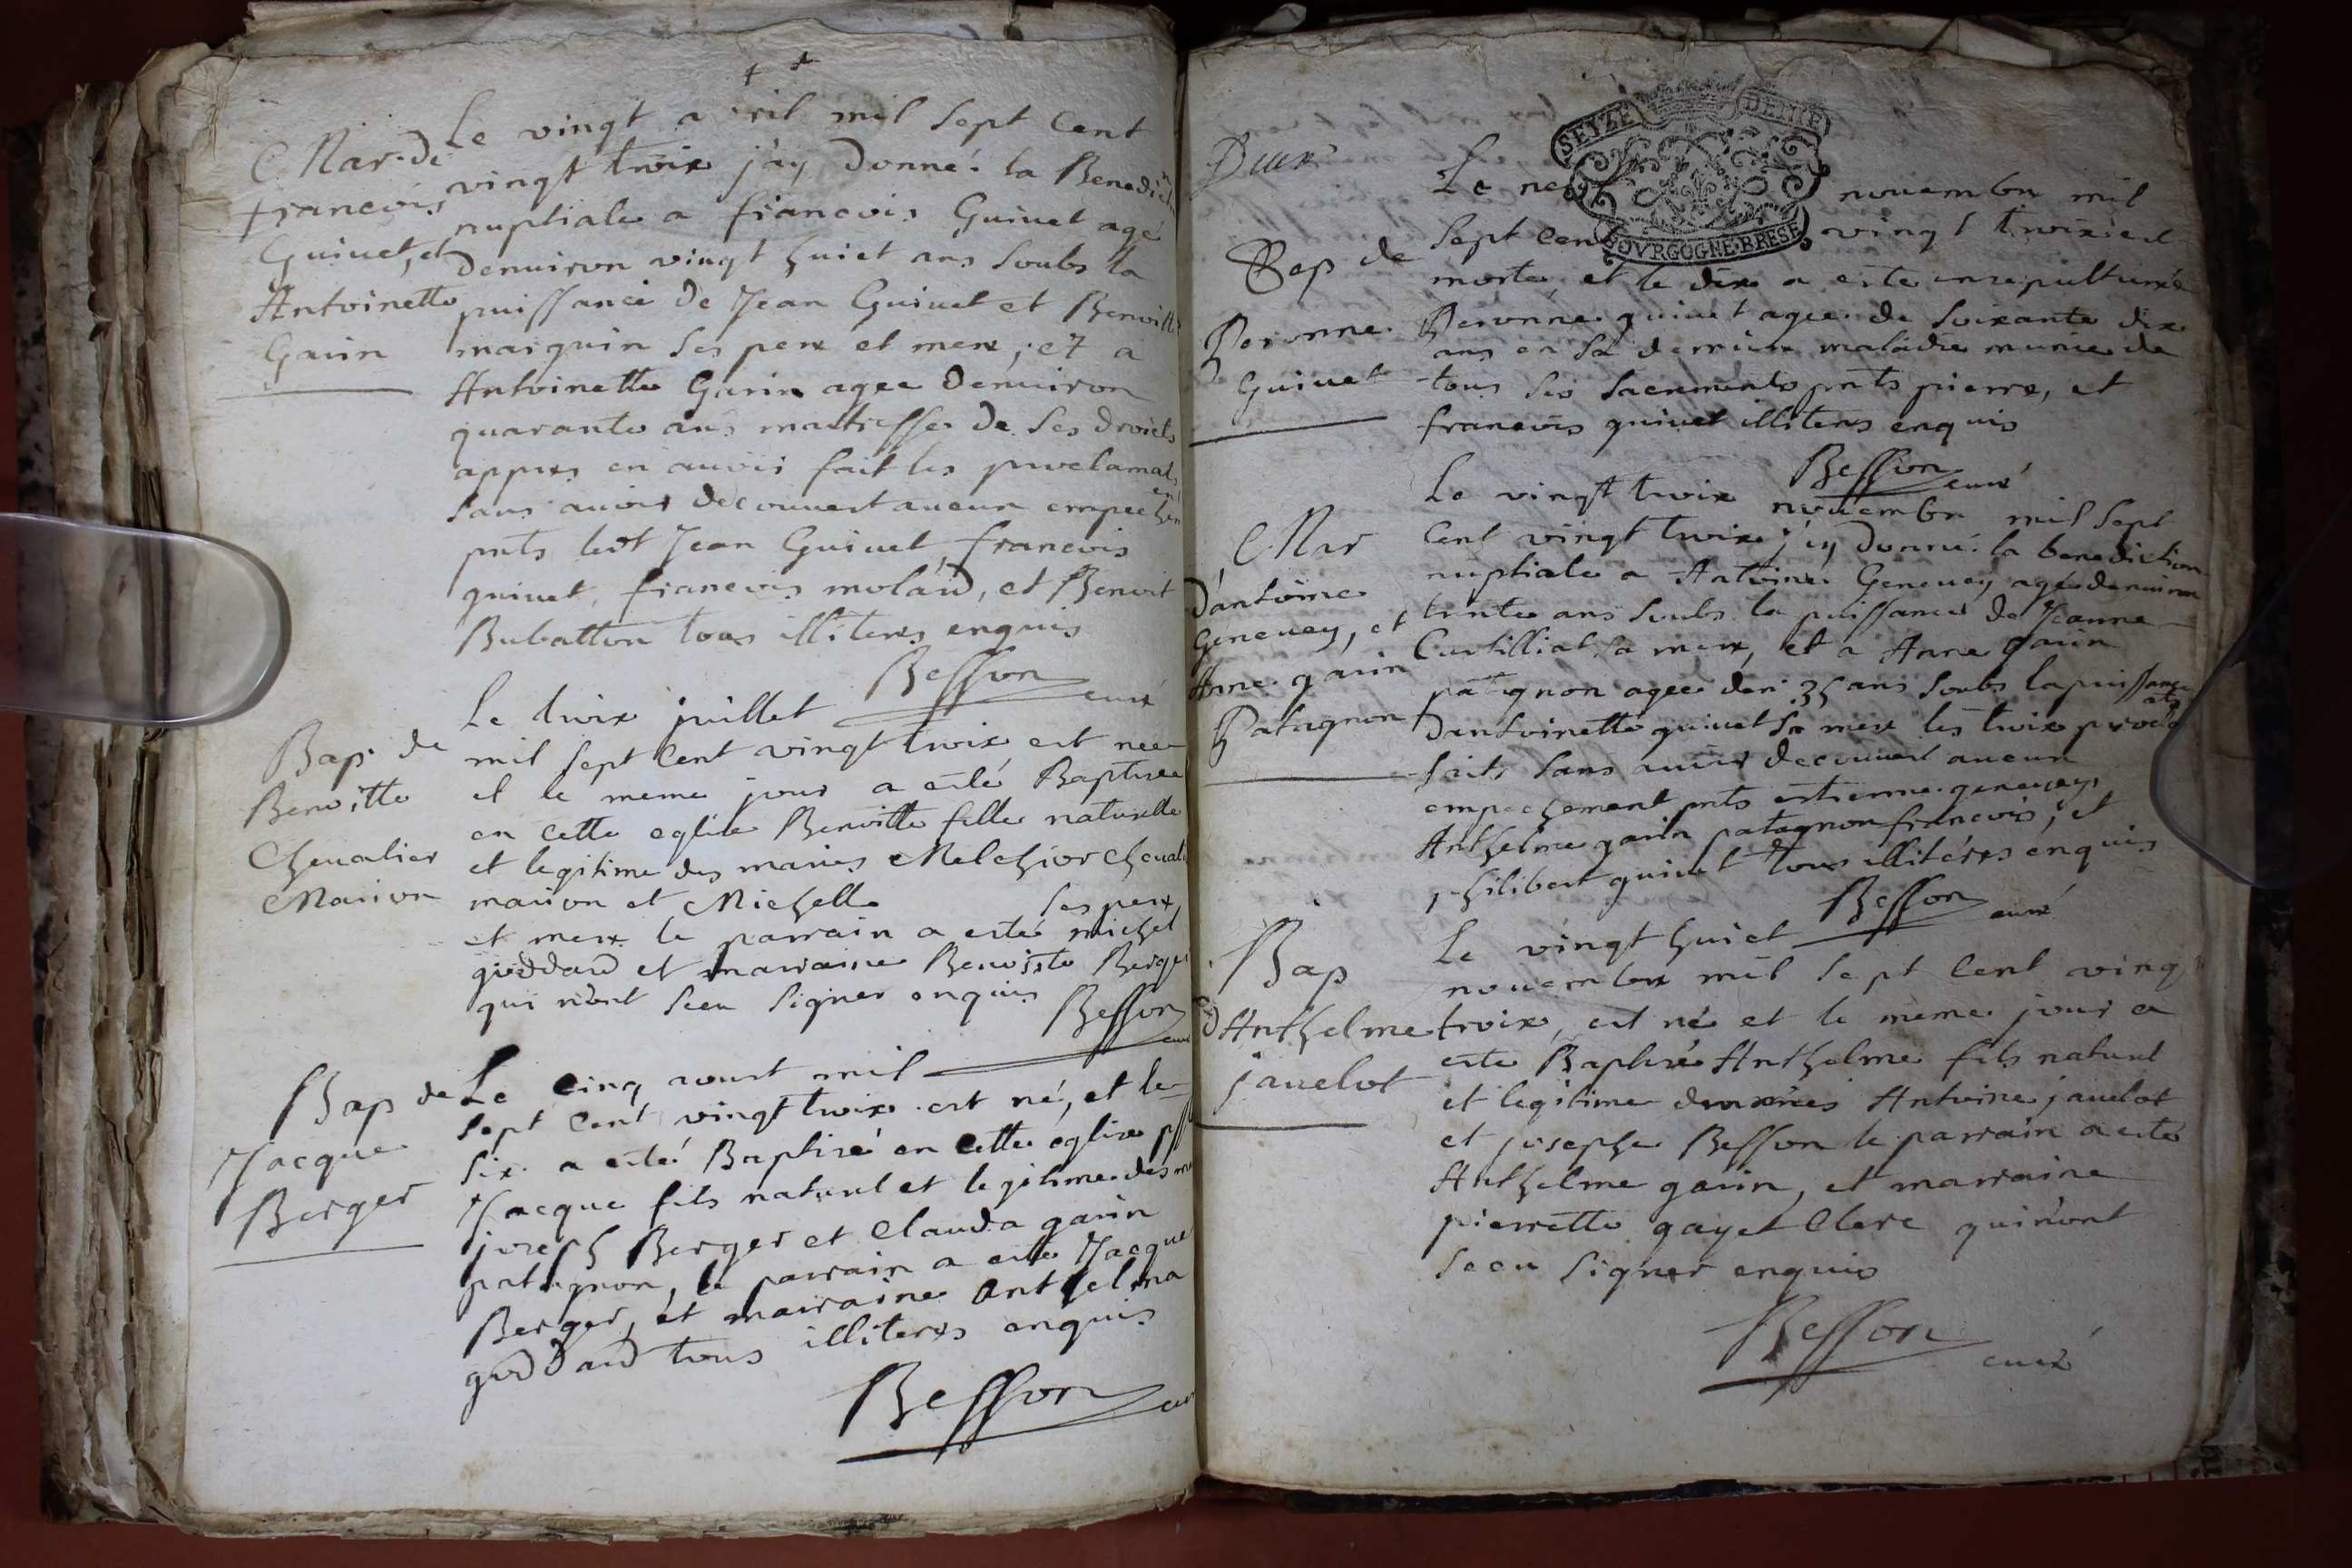 Mar. de
francois
Guivet, et
Antoinette
Garin
Le vingt avril mil sept cent
vingt troix j'ay donné la Benedict
nuptiale a francois Guivet agé
denviron vingt huict ans soubs la
puissance de Jean Guivet et Benoitte
marguin ses pere et mere, et a
Antoinette Garin agee denviron
quarante ans maitresse de ses droicts
appres en avoir fait les proclamat
sans avoir decouvert aucun empechem
pnts ledt Jean Guivet, francois
guivet, francois molard, et Benoit
Bubatton tous illiteres enquis
Besson curé
Bap. de
Benoitte
Chevalier
Marion
Le troix juillet
mil sept cent vingt troix est née
et le meme jour a esté Baptisee
en cette eglise Benoitte fille naturelle
et legitime des maries Melchior Cheval
marion et Michelle ses pere
et mere le parrain a esté michel
goddard et marraine Benoiste Berger
qui n'ont sceu signer enquis
Besson
Bap de
Jacque
Berger
Le cinq aoust mil
sept cent vingt troix est né, et le
six a esté Baptisé en cette eglise
Jacque fils naturel et legitime des
joseph Berger et Clauda garin
patagnon, le parrain a este Jacque
Berger, et marraine Anthelma
goddard tous illiteres enquis
Besson cur
Deux
SEIZE DENIE
BOVRGOGNE·BRESE
Sep de
Peronne
Guivet
Le neuf novembre mil
sept cent vingt troix est
morte et le dix a este ensepulturée
Peronne guivet agee de soixante dix
ans en sa derniere maladie munie de
tous ses sacrements pnts pierre, et
francois guivet illiteres enquis
Besson curé
Mar
d'antoine
Genevey, et
Anne garin
Patagnon
Le vingt troix novembre mil sept
cent vingt troix j'ay donné la benediction
nuptiale a Antoine Genevey agé denviron
trente ans soubs la puissance de Jeanne
Curtilliat sa mere, et a Anne garin
patagnon agee den. 35 ans soubs la puissance
dantoinette guivet sa mere les troix procla
faits sans avoir decouvert aucun
empechement pnts estienne genevey,
Anthelme garin patagnon francois, et
philibert guivet tous illitéres enquis
Besson curé
Bap
d'Anthelme
javelot
Le vingt huict
novembre mil sept cent vingt
troix, est né et le même jour a
este Baptisé Anthelme fils naturel
et legitime des mariés Antoine javelot
et josephe Besson le parrain a esté
Anthelme garin, et marraine
pierrette gayet Clerc qui n'ont
sceu signer enquis
Besson
curé